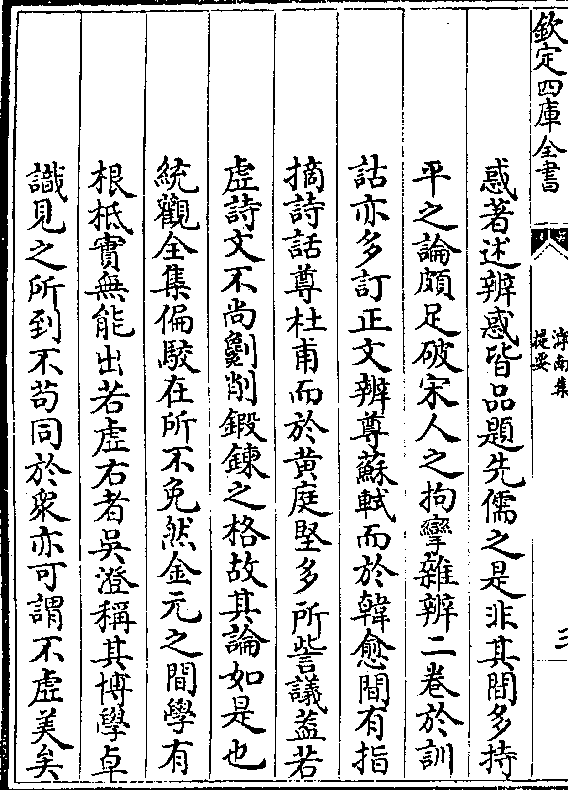 欽定四庫全書
滹南集
提要
三
惑著述辨惑皆品題先儒之是非其間多持
平之論頗足破宋人之拘攣雜辨二卷於訓
詁亦多訂正文辨尊蘇軾而於韓愈間有指
摘詩話尊杜甫而於黄庭堅多所訾議葢若
虚詩文不尚劖削鍛鍊之格故其論如是也
統觀全集偏駮在所不免然金元之間學有
根柢實無能出若虚右者吳澄稱其博學卓
識見之所到不苟同於衆亦可謂不虚美矣